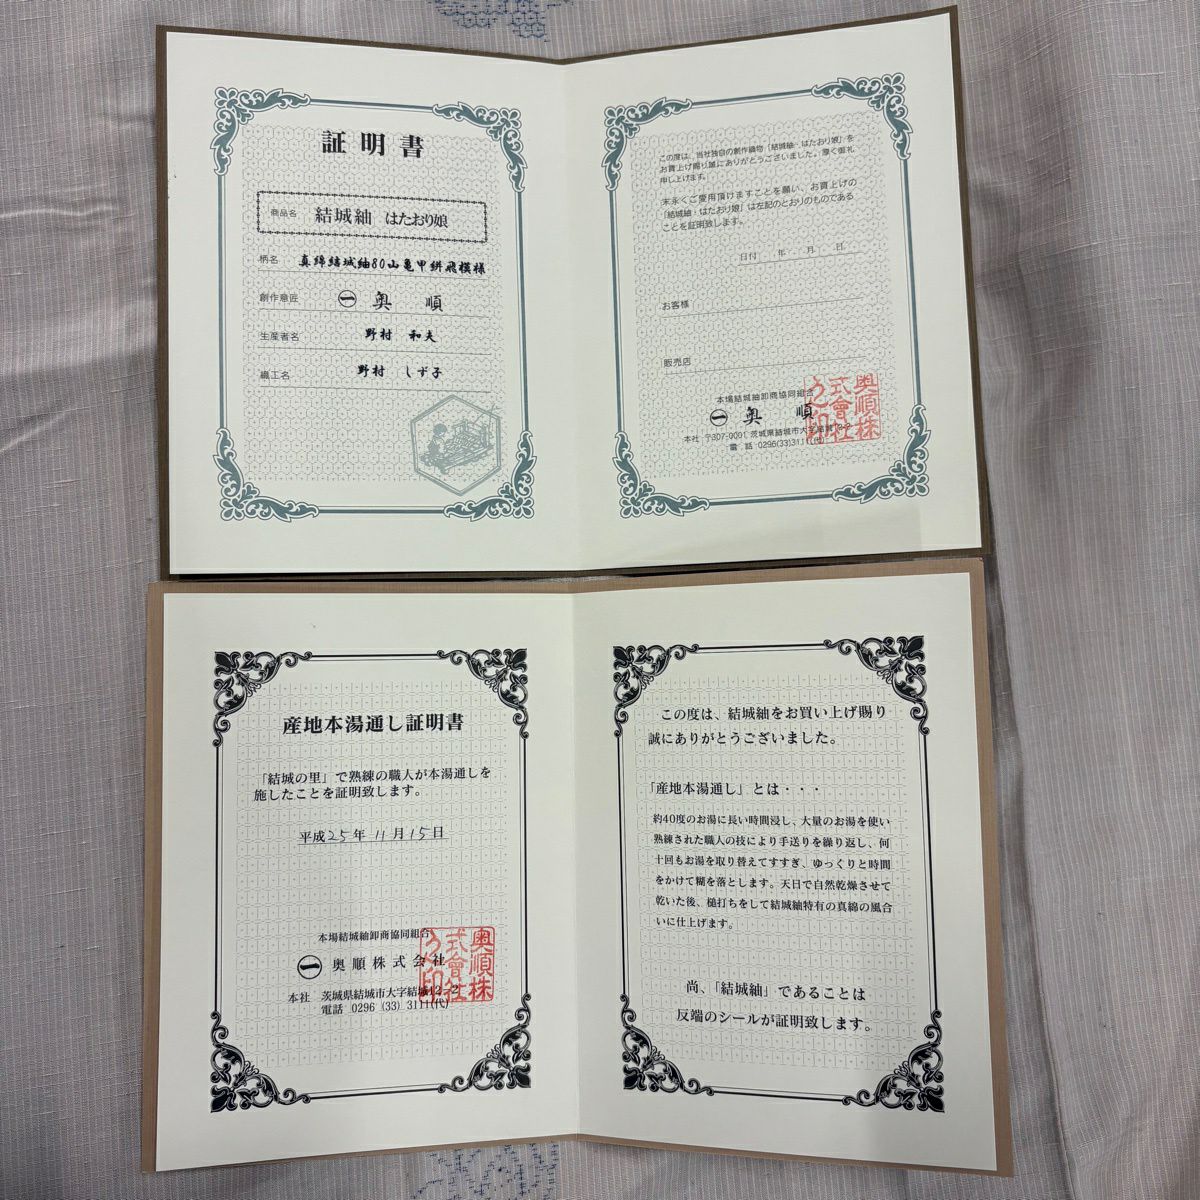 証明書
商品名 結城紬 はたおり娘
柄名 真綿結城紬80山亀甲絣飛模様
創作意匠 ㊀ 奥順
生産者名 野村 和夫
織工名 野村 しず子
この度は、当社独自の創作織物「結城紬・はたおり娘」を
お買上げ賜り誠にありがとうございました。厚く御礼
申し上げます。
末永くご愛用頂けますことを願い、お買上げの
「結城紬・はたおり娘」は左記のとおりのものである
ことを証明致します。
日付 年 月 日
お客様
販売店
本場結城紬卸商協同組合
㊀ 奥順
本社 〒307-0001 茨城県結城市大字結城12-2
電話 0296(33)3111(代)
奥順株
式會社
産地本湯通し証明書
「結城の里」で熟練の職人が本湯通しを
施したことを証明致します。
平成25年11月15日
本場結城紬卸商協同組合
㊀ 奥順株式会社
本社 茨城県結城市大字結城12-2
電話 0296 (33) 3111(代)
奥順株
式會社
この度は、結城紬をお買い上げ賜り
誠にありがとうございました。
「産地本湯通し」とは・・・
約40度のお湯に長い時間浸し、大量のお湯を使い
熟練された職人の技により手送りを繰り返し、何
十回もお湯を取り替えてすすぎ、ゆっくりと時間
をかけて糊を落とします。天日で自然乾燥させて
乾いた後、槌打ちをして結城紬特有の真綿の風合
いに仕上げます。
尚、「結城紬」であることは
反端のシールが証明致します。